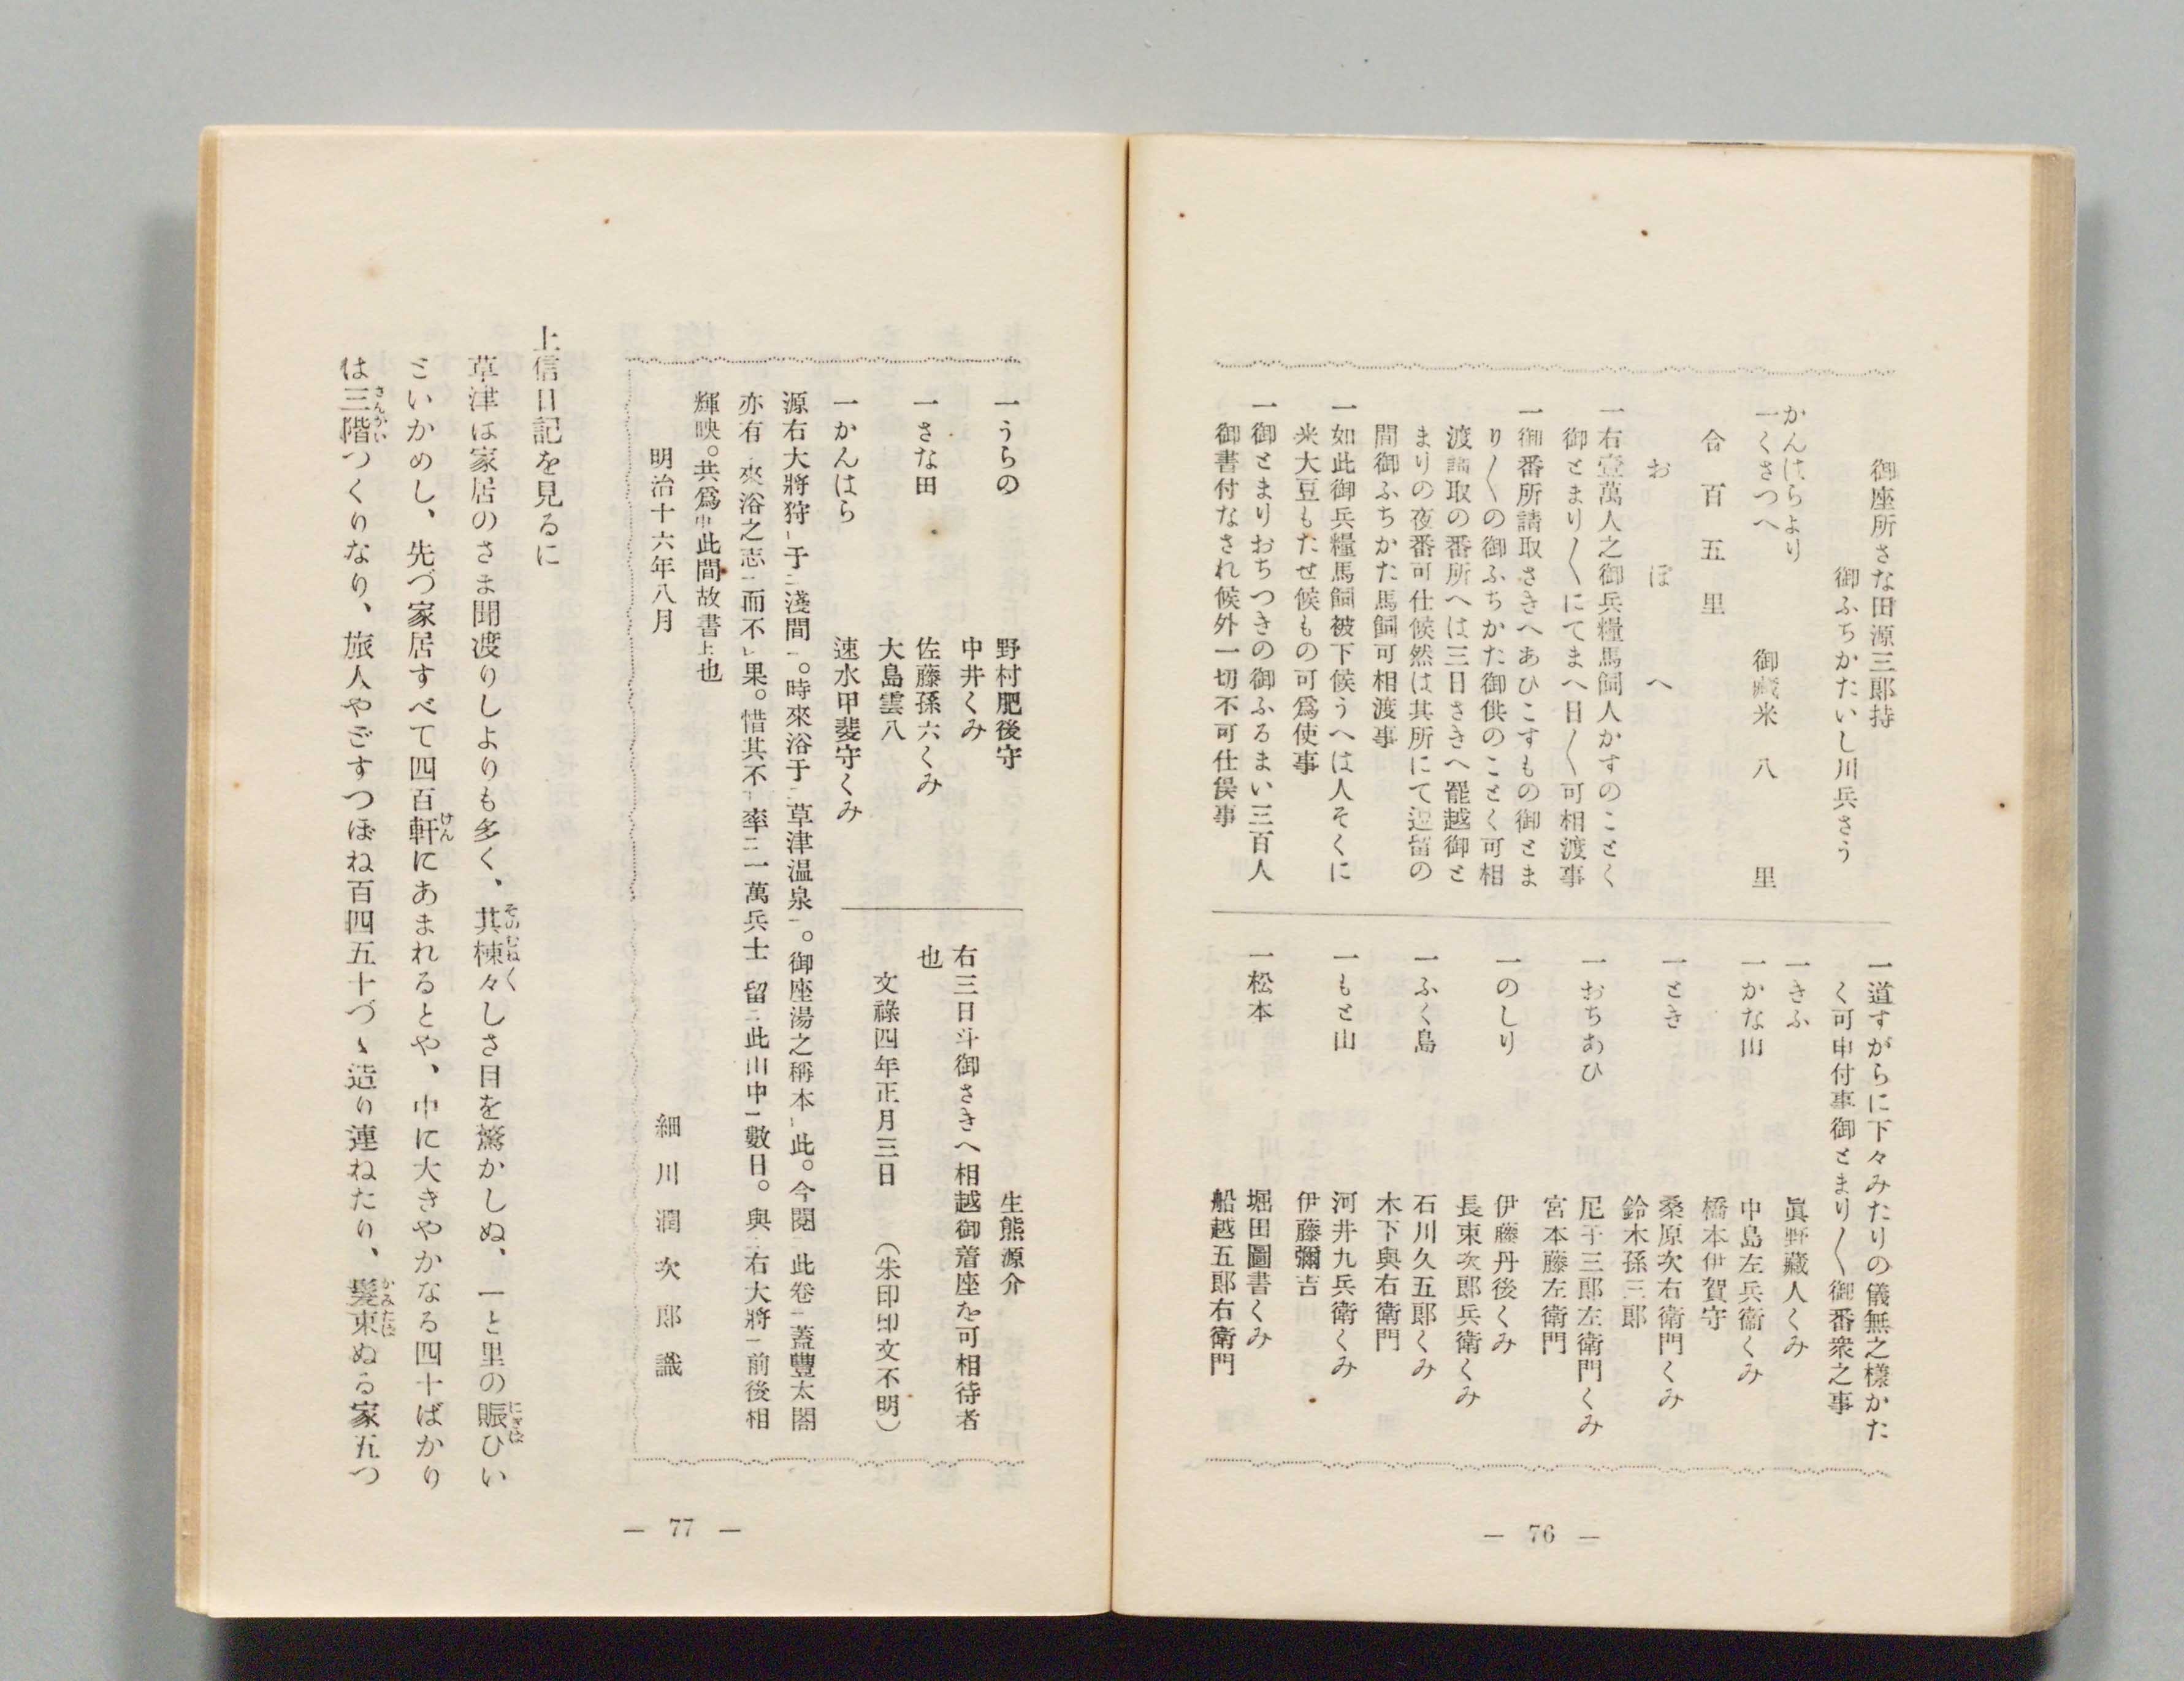 御座所さな田源三郎持
御ふちかたいし川兵さう
かんはらより
一くさつへ　御藏米　八　里
合百五里
おぼへ
一右壹萬人之御兵糧馬飼人かすのことく
御とまり〳〵にてまへ日〳〵可相渡事
一御番所請取さきへあひこすもの御とま
り〳〵の御ふちかた御供のことく可相
渡請取の番所へは三日さきへ罷越御と
まりの夜番可仕候然は其所にて逗留の
間御ふちかた馬飼可相渡事
一如此御兵糧馬飼被下候うへは人そくに
米大豆もたせ候もの可爲使事
一御とまりおちつきの御ふるまい三百人
御書付なされ候外一切不可仕候事
一道すがらに下々みたりの儀無之樣かた
く可申付事御とまり〳〵御番衆之事
一きふ　眞野藏人くみ
一かな山　中島左兵衞くみ
橋本伊賀守
一とき　桑原次右衛門くみ
鈴木孫三郎
一おちあひ　尼子三郎左衛門くみ
宮本藤左衛門
一のしり　伊藤丹後くみ
長束次郎兵衛くみ
一ふく島　石川久五郎くみ
木下與右衛門
一もと山　河井九兵衛くみ
伊藤彌吉
一松本　堀田圖書くみ
船越五郎右衛門
— 76 —
一うらの　野村肥後守
中井くみ
一さな田　佐藤孫六くみ
大島雲八
一かんはら　速水甲斐守くみ
生熊源介
右三日斗御さきへ相越御着座を可相待者
也
文祿四年正月三日　（朱印印文不明）
源右大將狩㆑于㆓淺間㆒。時來浴于㆓草津温泉㆒。御座湯之稱本㆑此。今閲㆓此卷㆒蓋豐太閤
亦有㆓來浴之志㆒而不㆑果。惜其不㆘率㆓一萬兵士㆒留㆓此山中㆒數日。與㆓右大將㆒前後相
輝映。共爲㆗此間故書㆖也
明治十六年八月　細川潤次郎識
上信日記を見るに
草津は家居のさま聞渡りしよりも多く、其棟々（そのむね〳〵）しさ目を驚かしぬ、一と里の賑（にぎは）ひい
といかめし、先づ家居すべて四百軒（けん）にあまれるとや、中に大きやかなる四十ばかり
は三階（さんがい）つくりなり、旅人やどすつぼね百四五十づゝ造り連ねたり、髮束（かみたば）ぬる家五つ
— 77 —